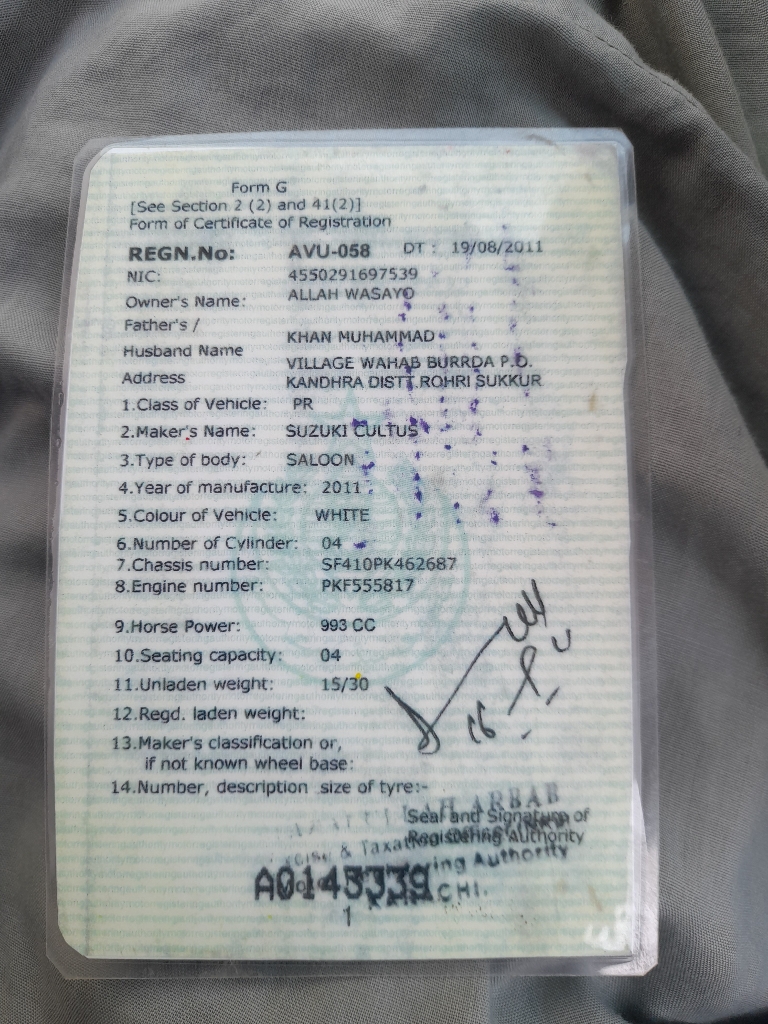 Form G
[See Section 2 (2) and 41(2)]
Form of Certificate of Registration
REGN.No: AVU-058 DT : 19/08/2011
NIC: 4550291697539
Owner's Name: ALLAH WASAYO
Father's /
Husband Name KHAN MUHAMMAD
Address VILLAGE WAHAB BURRDA P.O.
KANDHRA DISTT.ROHRI SUKKUR
1.Class of Vehicle: PR
2.Maker's Name: SUZUKI CULTUS
3.Type of body: SALOON
4.Year of manufacture: 2011
5.Colour of Vehicle: WHITE
6.Number of Cylinder: 04
7.Chassis number: SF410PK462687
8.Engine number: PKF555817
9.Horse Power: 993 CC
10.Seating capacity: 04
11.Unladen weight: 15/30
12.Regd. laden weight:
13.Maker's classification or,
if not known wheel base:
14.Number, description size of tyre:-
ARBAB
Seal and Signature of
Registering Authority
& Taxation
Authority
A0145339
1